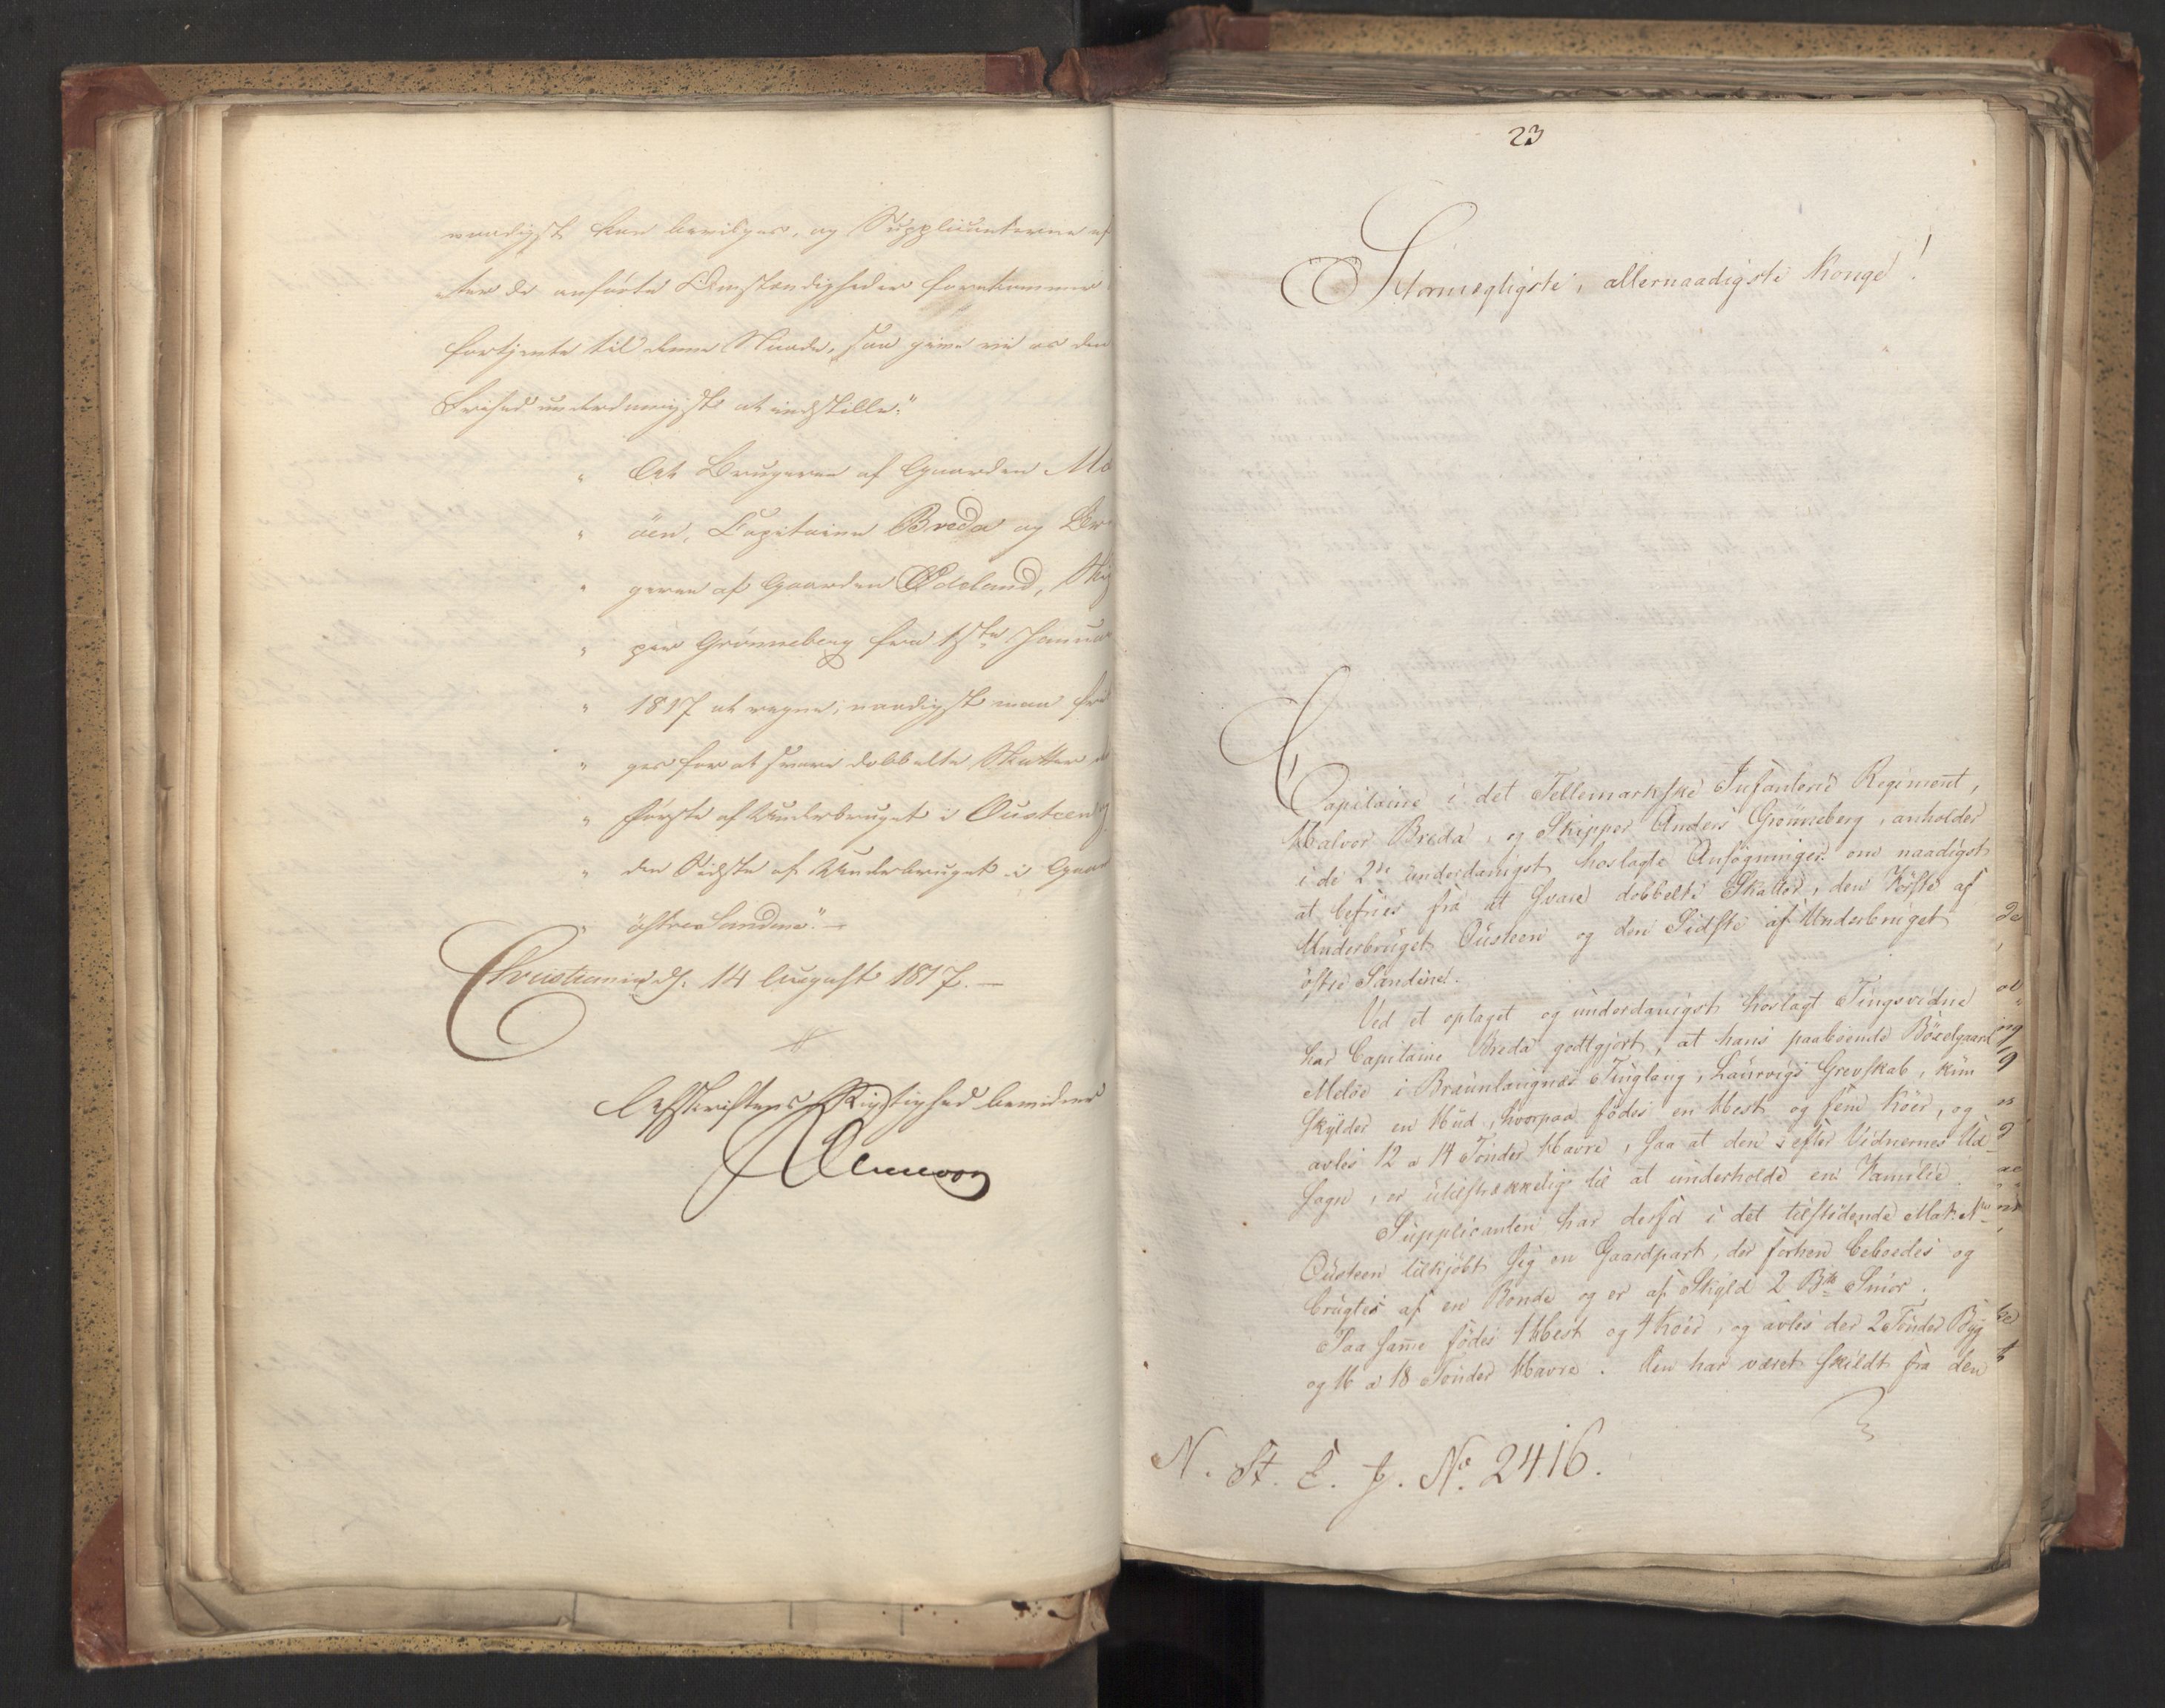 naadigst kan bevilges, og Supplicanterne ef
ter de anførte Omstændigheder forekommer
fortjente til denne Naade, saa give vi os den
Frihed underdanigst at indstille:"
" At Brugeren af Gaarden Me
" löen, Capitaine Breda og Bru
" geren af Gaarden Ödeland, Skip
" per Grönneberg fra 1ste Januar
" 1817 at regne, naadigst maa fri
" ges for at svare dobbelte Skatter
" første af Underbruget i Öusteen og
" den Sidste af Underbruget i Gaar
" östre Sandene."
Christiania d. 14 August 1817.
Afskriftens Rigtighed bevidner
23
Stormægtigste, allernaadigste Konge!
Capitaine i det Tellemarkske Infanterie Regiment,
Halvor Breda, og Skipper Anders Grönneberg, anholder
i de 2de underdanigst hoslagte Ansøgninger om naadigst
at befries fra at svare dobbelte Skatter, den Første af
Underbruget Öusteen og den Sidste af Underbruget
östre Sandene.
Ved et optaget og underdanigst hoslagt Tingsvidne
har Capitaine Breda godtgjort, at hans paaboende Böxelgaard
Melöe i Braunlaugnæs Tinglaug, Laurvigs Grevskab, kun
skylder en Hud, hvorpaa födes en Hest og fem Köer, og
avles 12 a 14 Tönder Havre, saa at den efter Vidnernes Ud-
sagn, er utilstrækkelig til at underholde en Familie.
Supplicanten har derfor i det tilstödende Mat: No
Öusteen tilkjöbt sig en Gaardpart, der forhen beboedes og
brugtes af en Bonde og er af Skyld 2 Bdr Smör.
Paa samme födes 1 Hest og 4 Köer, og avles der 2 Tönder Byg
og 16 a 18 Tönder Havre. Den har været skildt fra den
N. St. E. J. No. 2416.